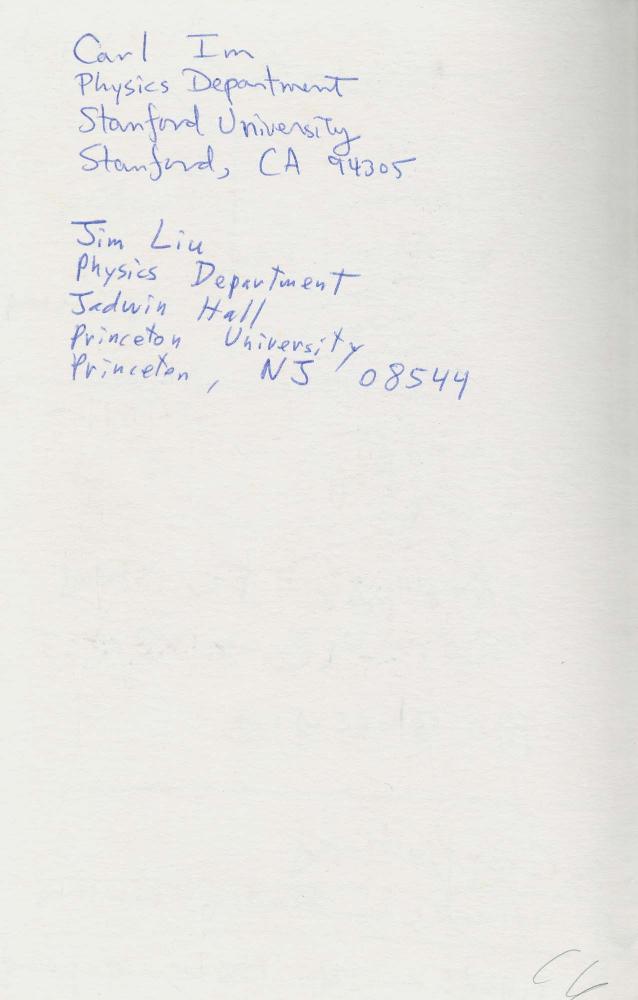 Carl Im
Physics Department
Stanford University
Stanford, CA 94305
Jim Liu
Physics Department
Jadwin Hall
Princeton University
Princeton, NJ 08544